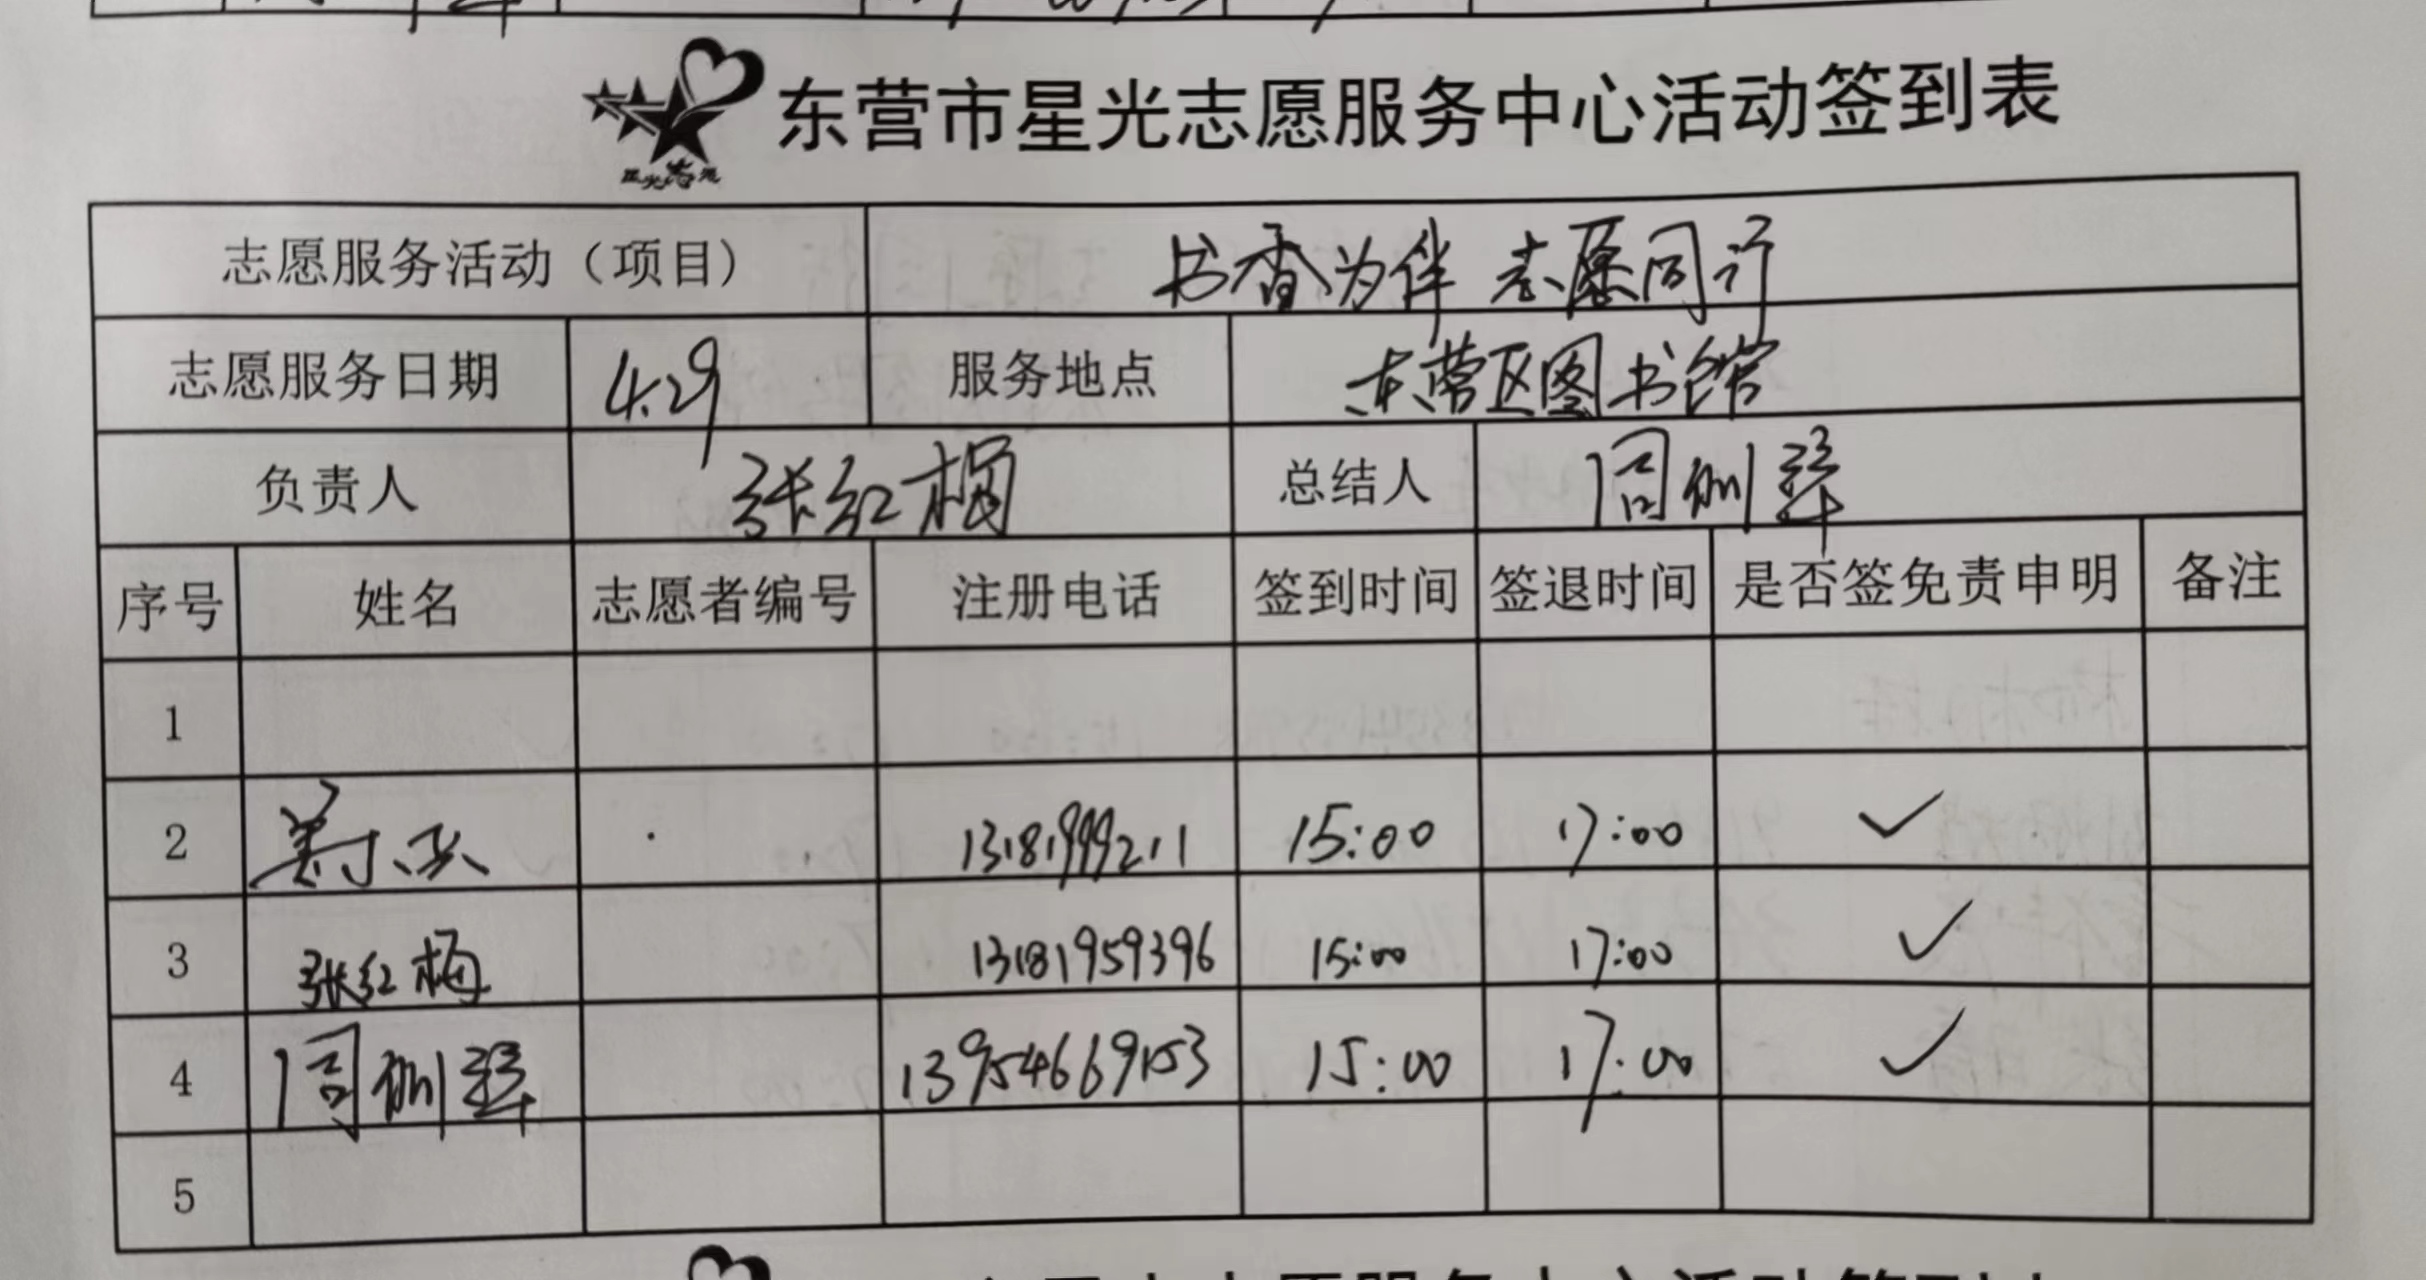 星光志愿
东营市星光志愿服务中心活动签到表
志愿服务活动（项目） 书香为伴 志愿同行
志愿服务日期 4.29 服务地点 东营区图书馆
负责人 张红梅 总结人
序号 姓名 志愿者编号 注册电话 签到时间 签退时间 是否签免责申明 备注
1
2 13181999211 15:00 17:00 ✓
3 张红梅 13181959396 15:00 17:00 ✓
4 13954669153 15:00 17:00 ✓
5